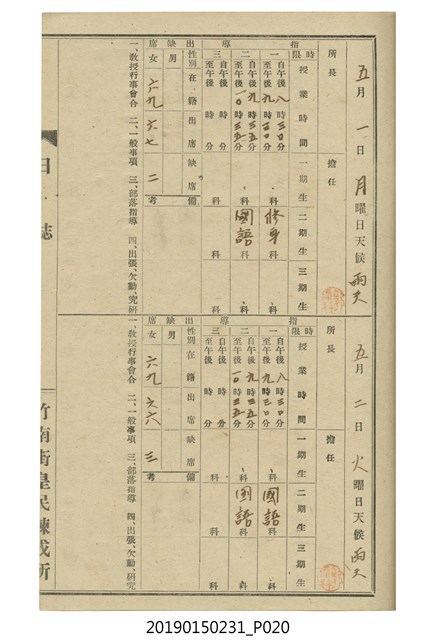 五月一日月曜日天候雨天
所長 擔任
時限 授業時間 一期生 二期生 三期生
指導
一 自午後八時三〇分 至午後九時二〇分 科 修身科 科
二 自午後九時二五分 至午後一〇時三五分 科 國語科 科
三 自午後 時 分 至午後 時 分 科 科 科
出缺席
性別 在籍 出席 缺席 備考
男
女 六九 六七 二
一、教授行事會合 二、一般事項 三、部落指導 四、出張、欠勤、研究
五月二日火曜日天候雨天
所長 擔任
時限 授業時間 一期生 二期生 三期生
指導
一 自午後八時三〇分 至午後九時二〇分 科 國語科 科
二 自午後九時二五分 至午後一〇時三五分 科 國語科 科
三 自午後 時 分 至午後 時 分 科 科 科
出缺席
性別 在籍 出席 缺席 備考
男
女 六九 六六 三
一、教授行事會合 二、一般事項 三、部落指導 四、出張、欠勤、研究
日誌
竹南街皇民鍊成所
20190150231_P020